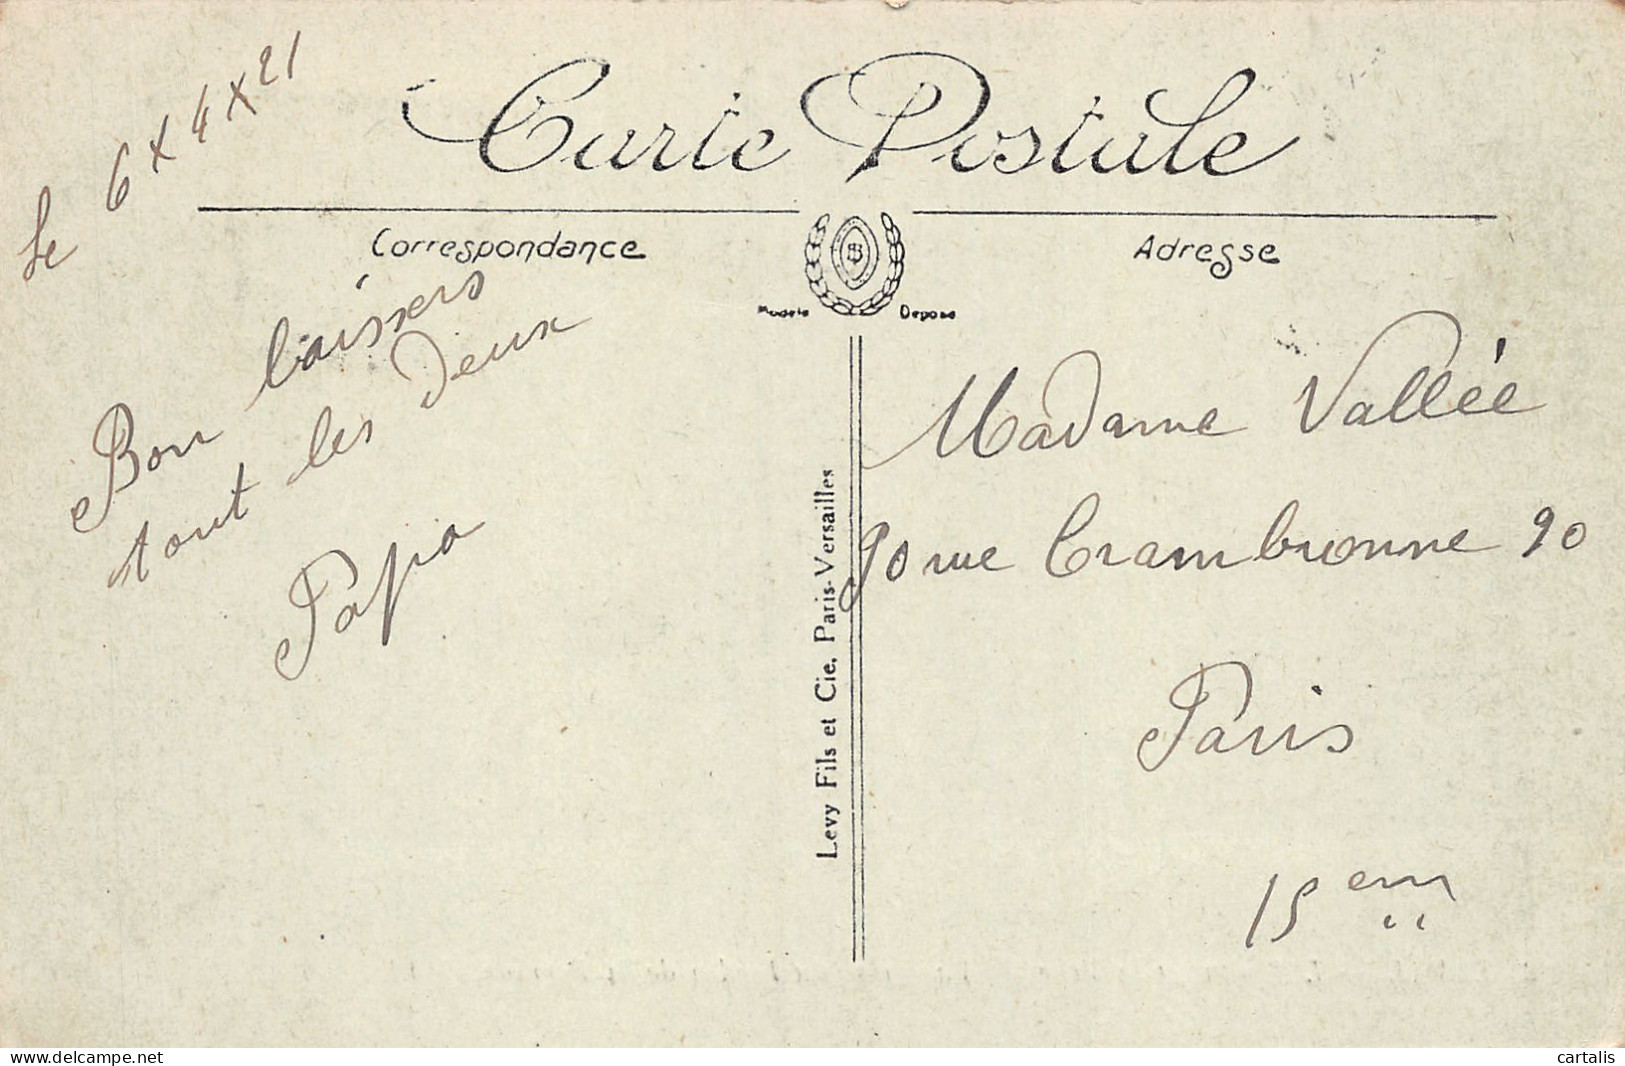 Carte Postale
Correspondance
Adresse
Modele Depose
Le 6 x 4 x 21
Bon baissers
tout les deux
Papa
Levy Fils et Cie, Paris-Versailles
Madame Vallée
90 rue Crambronne 90
Paris
15em
delcampe.net
cartalis